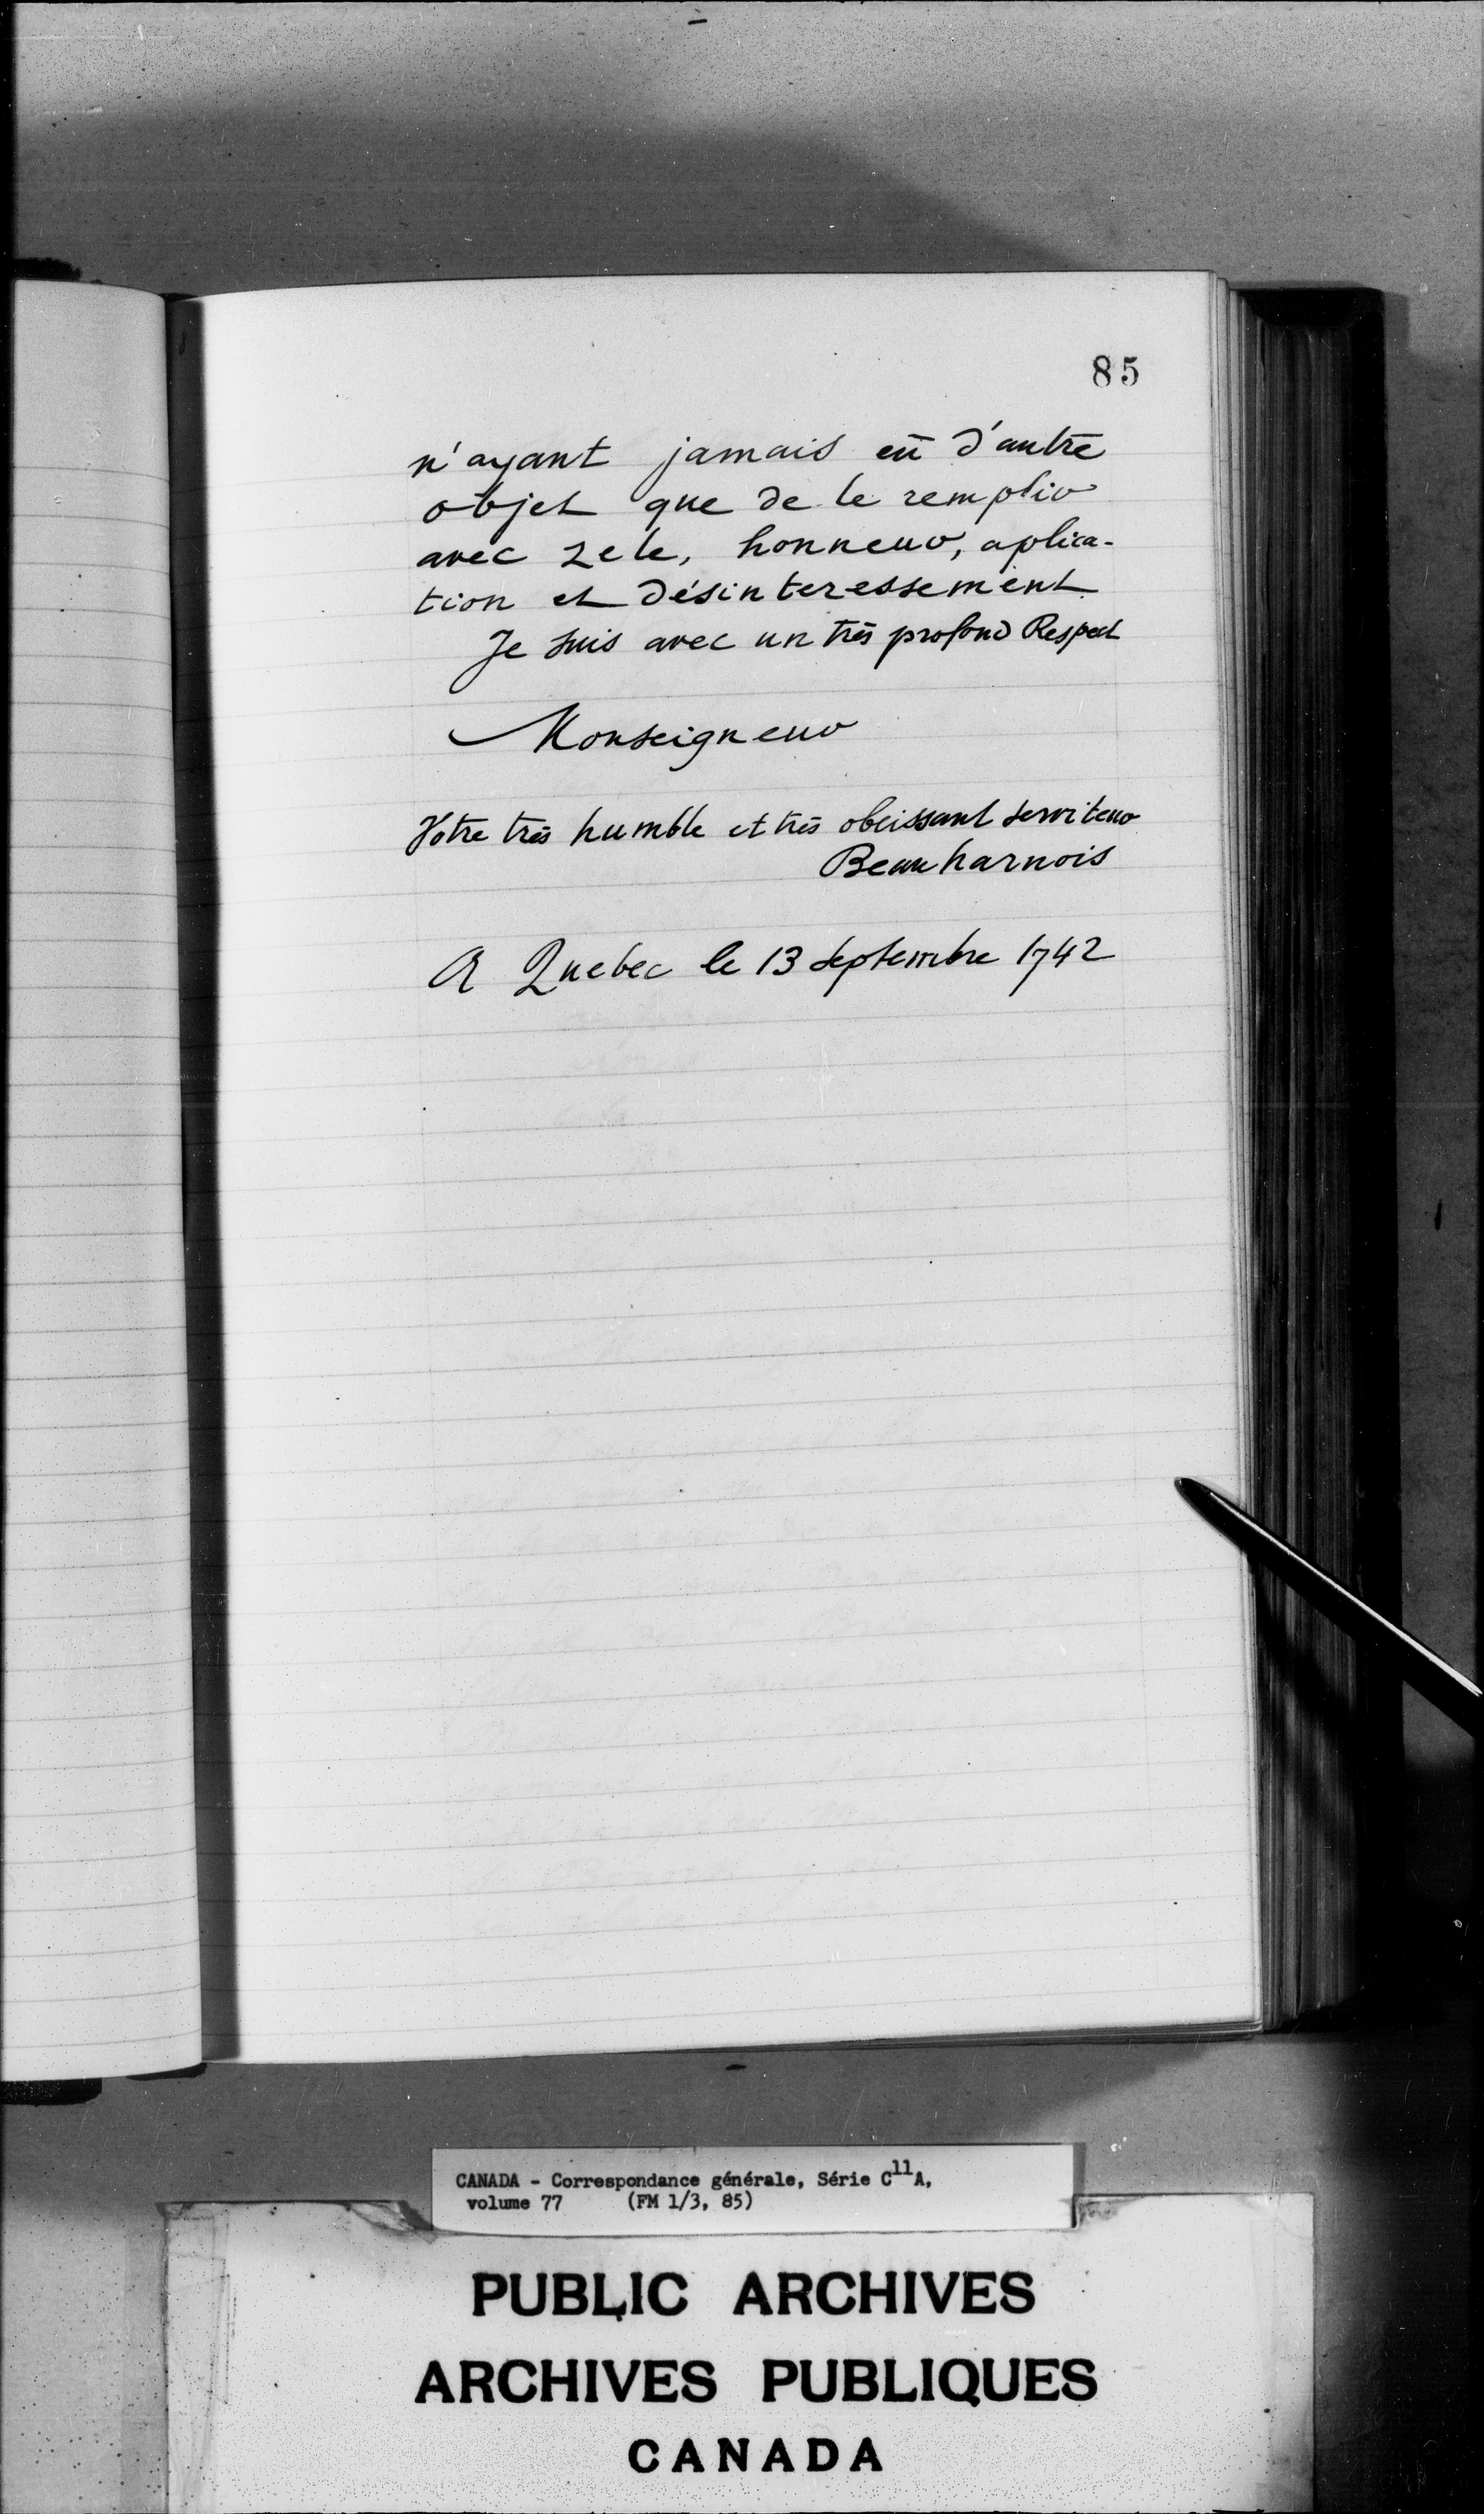 85
n'ayant jamais eü d'autre
objet que de le remplir
avec zele, honneur, aplica-
tion et désinteressement
Je suis avec un très profond Respect
Monseigneur
Votre très humble et très obeissant serviteur
Beauharnois
A Quebec le 13 septembre 1742
CANADA - Correspondance générale, Série C11A,
volume 77 (FM 1/3, 85)
PUBLIC ARCHIVES
ARCHIVES PUBLIQUES
CANADA